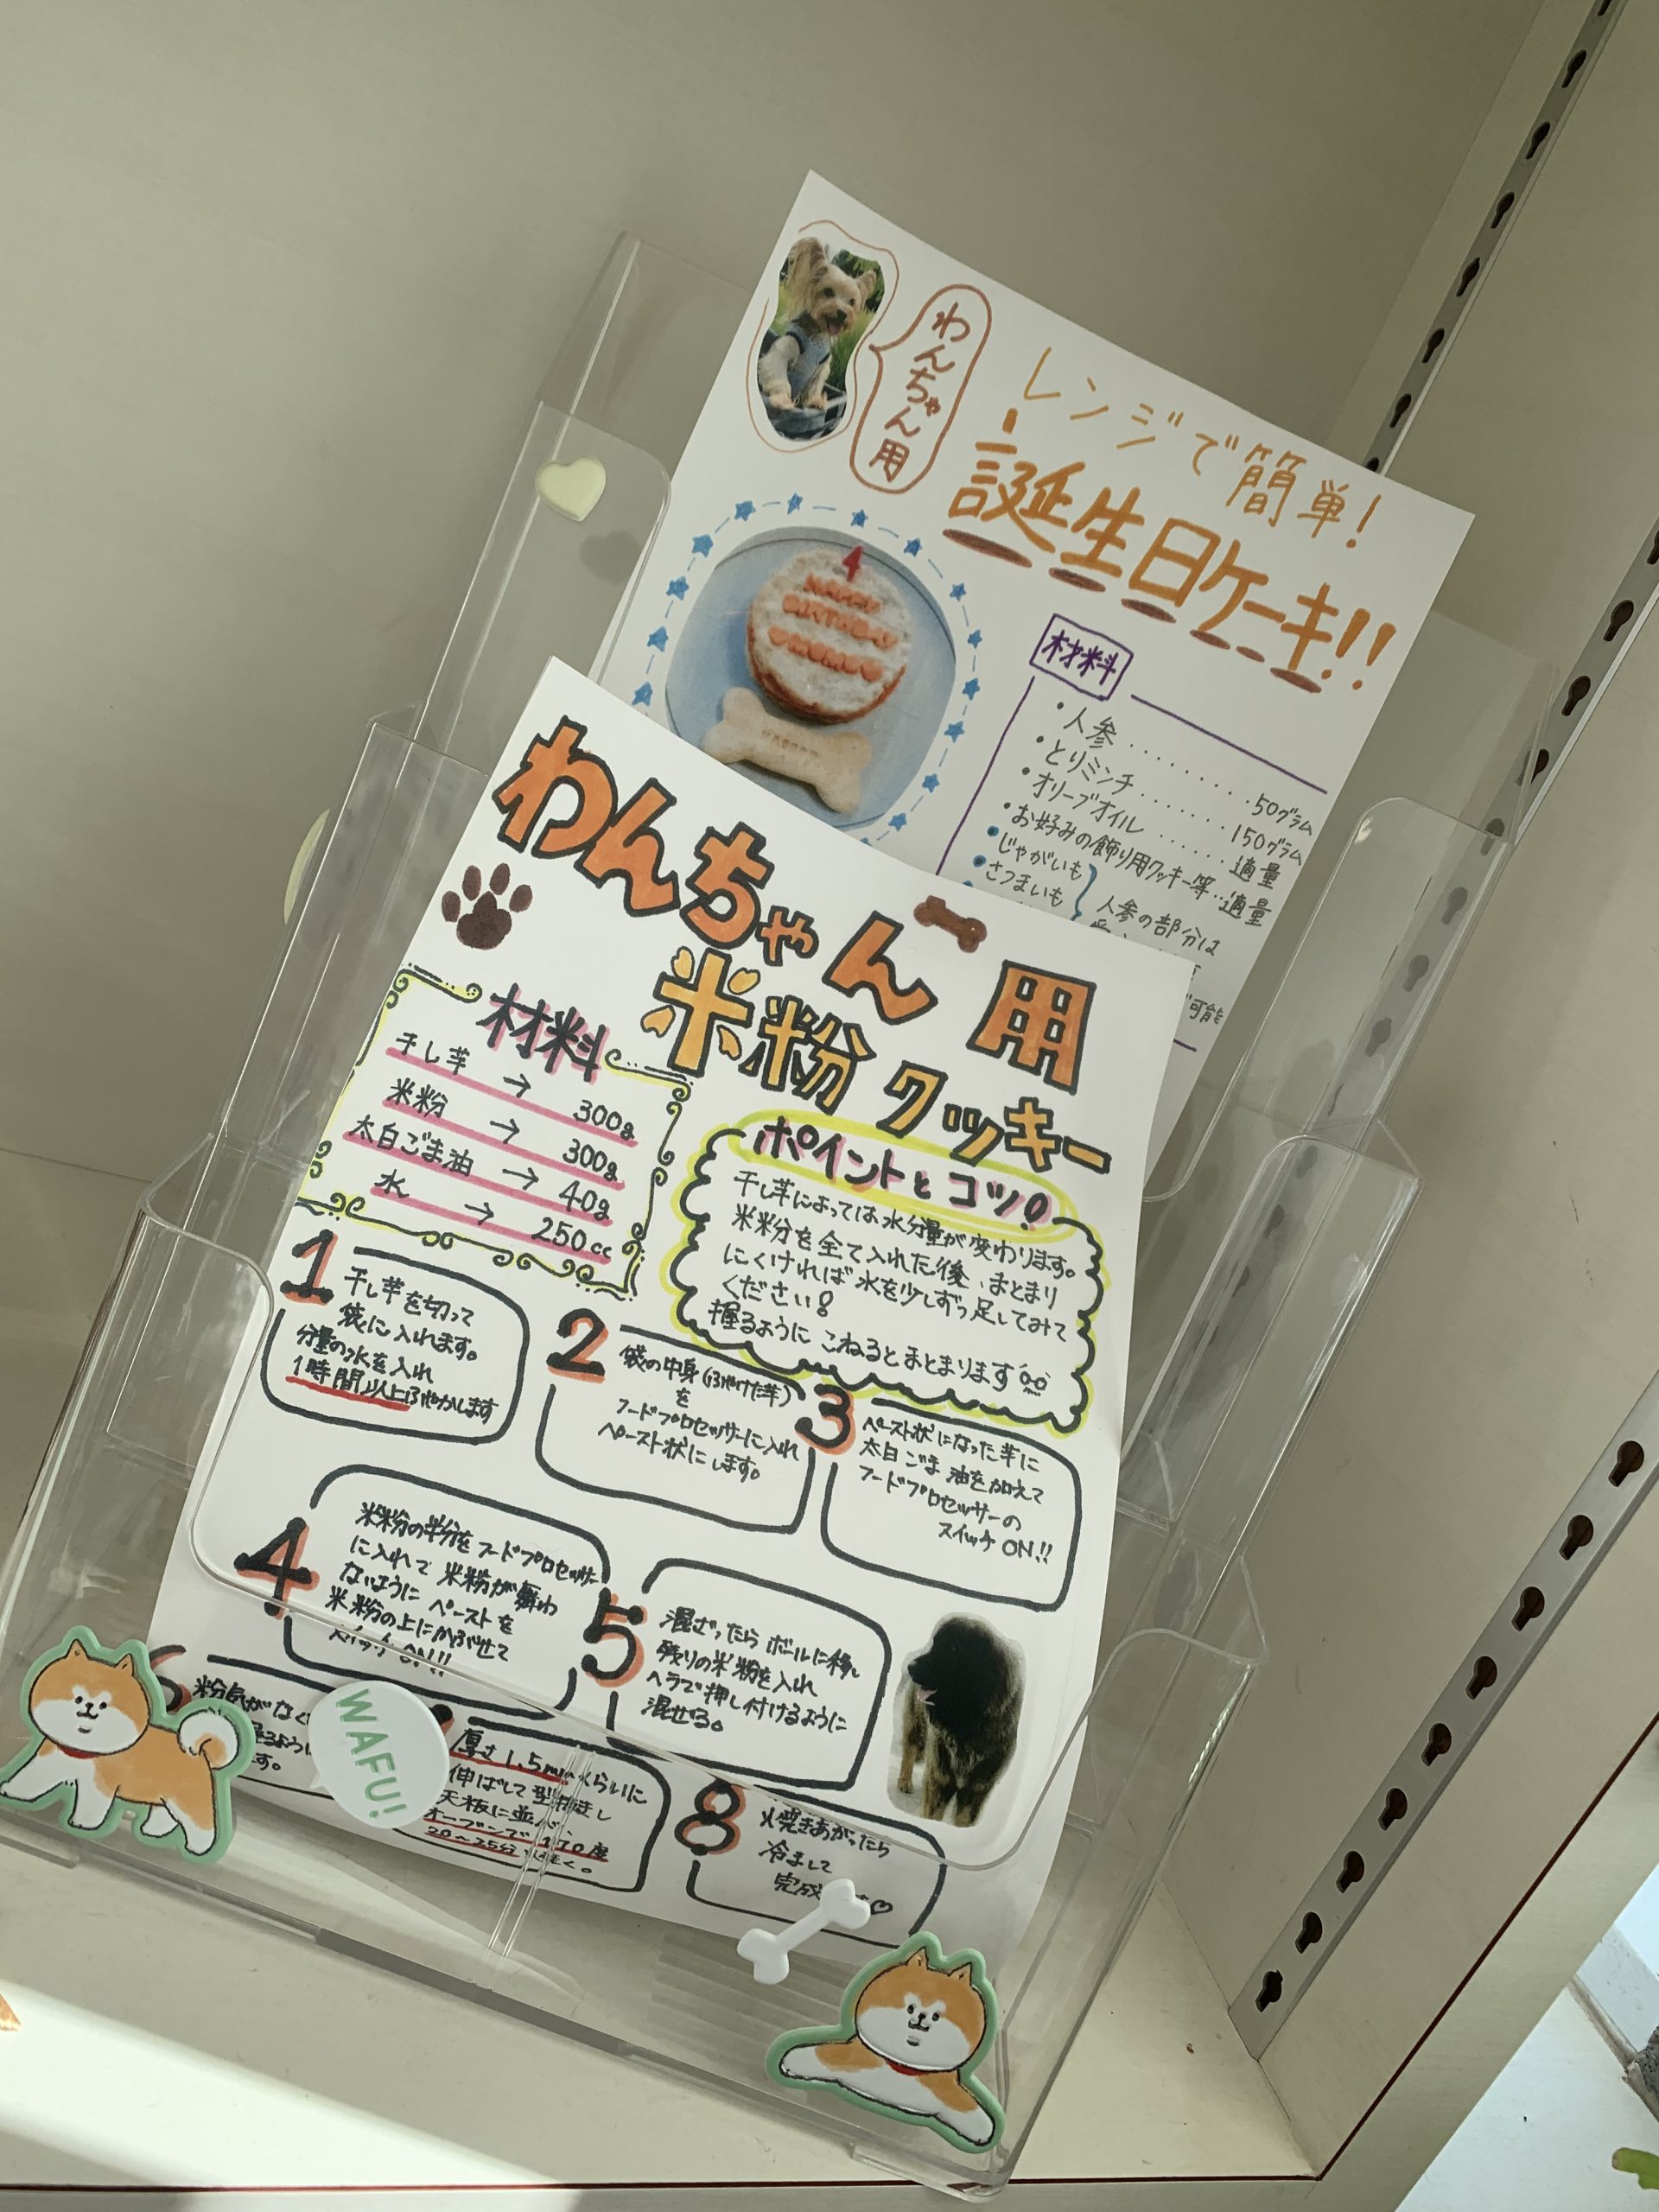 わんちゃん用
レンジで簡単!
誕生日ケーキ!!
4
HAPPY
BIRTHDAY
材料
・人参............50グラム
・とりミンチ........150グラム
・オリーブオイル.......適量
・お好みの飾り用クッキー等..適量
・じゃがいも
・さつまいも
人参の部分は
可能
わんちゃん用
米粉クッキー
材料
干し芋 → 300g
米粉 → 300g
太白ごま油 → 40g
水 → 250cc
ポイントとコツ!
干し芋によっては水分量が変わります。
米粉を全て入れた後、まとまり
にくければ水を少しずつ足してみて
ください!
握るようにこねるとまとまります
1
干し芋を切って
袋に入れます。
分量の水を入れ
1時間以上ふやかします
2
袋の中身(ふやけた芋)
を
フードプロセッサーに入れ
ペースト状にします。
3
ペースト状になった芋に
太白ごま油を加えて
フードプロセッサーの
スイッチON!!
4
米粉の半分をフードプロセッサー
に入れて米粉が舞わ
ないようにペーストを
米粉の上にかぶせて
スイッチON!!
5
混ざったらボールに移し
残りの米粉を入れ
ヘラで押し付けるように
混ぜる。
6
粉気がなく
るように
す。
厚さ1.5mmくらいに
伸ばして型抜きし
天板に並べ、
オーブンで170度
20〜25分焼く。
8
焼きあがったら
冷まして
完成
WAFU!